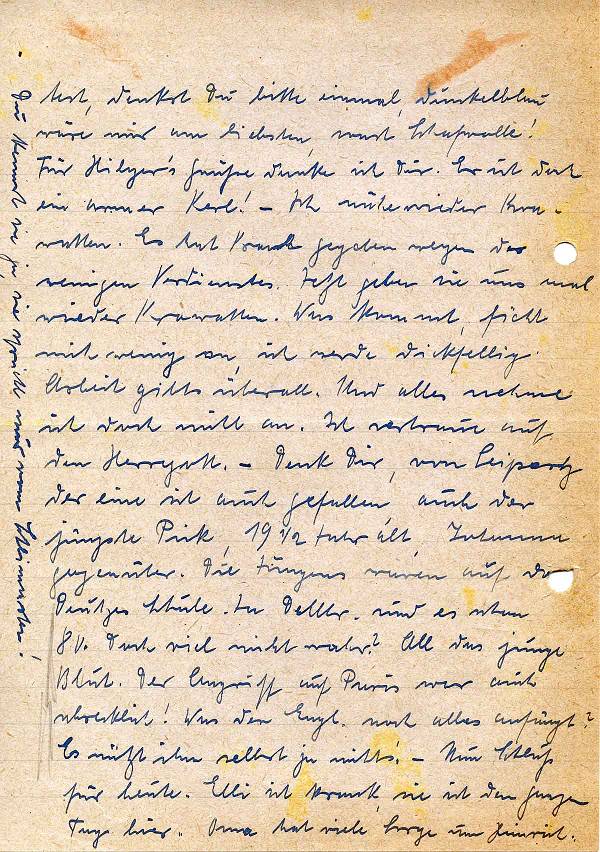 test, denkst Du bitte einmal, dunkelblau
wäre mir am liebsten, mast Schafwolle!
Für Hilger's Grüße danke ich Dir. Er ist doch
ein armer Kerl! – Ich nähe wieder Kra-
watten. Es hat Krach gegeben wegen des
wenigen Verdienstes. Jetzt geben sie uns mal
wieder Krawatten. Was kommt, ficht
mich wenig an, ich werde dickfellig.
Arbeit gibts überall. Und alles nehme
ich doch nicht an. Ich vertraue auf
den Herrgott. – Denk Dir, von
der eine ist auch gefallen, auch der
jüngste Pick, 19 1/2 Jahr alt,
gegenüber. Die Jungens waren auf der
Deutzer Schule. In Dellbr. sind es schon
80. Doch viel nicht wahr? All das junge
Blut. Der Angriff auf Paris war auch
schrecklich! Was der Engl. noch alles anfängt?
Es nützt ihm selbst ja nichts! – Nun Schluß
für heute. Elli ist krank, sie ist den ganzen
Tag hier. Oma hat viele Sorge um Heinrich.
Du kennst sie ja, sie spricht nur vom